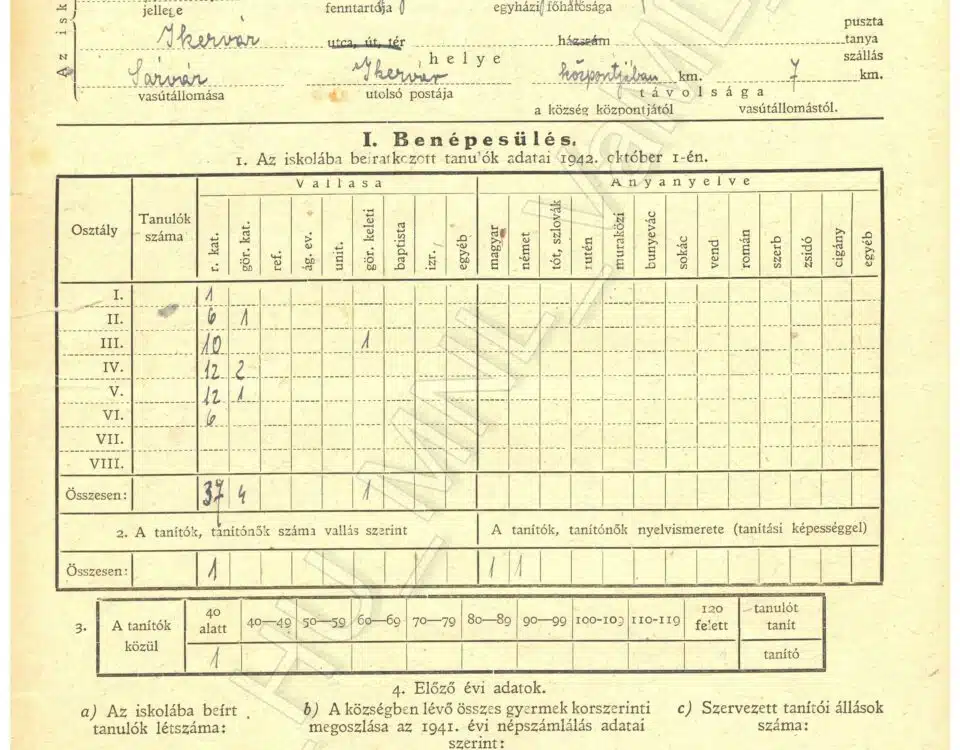 Az isk
jellege fenntartója egyházi főhatósága
Ikervár utca, út, tér házszám puszta
tanya
szállás
helye
Sárvár Ikervár központjában km. 7 km.
távolsága
vasútállomása utolsó postája a község központjától vasútállomástól.
I. Benépesülés.
1. Az iskolába beiratkozott tanulók adatai 1942. október 1-én.
Vallása Anyanyelve
Osztály Tanulók száma r. kat. gör. kat. ref. ág. ev. unit. gör. keleti baptista izr. egyéb magyar német tót, szlovák rutén muraközi bunyevác sokác vend román szerb zsidó cigány egyéb
I. 1
II. 6 1
III. 10 1
IV. 12 2
V. 12 1
VI. 6
VII.
VIII.
Összesen: 37 4 1
2. A tanítók, tanítónők száma vallás szerint A tanítók, tanítónők nyelvismerete (tanítási képességgel)
Összesen: 1 1 1
3. A tanítók közül 40 alatt 40—49 50—59 60—69 70—79 80—89 90—99 100-109 110-119 120 felett tanulót tanít
1 tanító
4. Előző évi adatok.
a) Az iskolába beírt b) A községben lévő összes gyermek korszerinti c) Szervezett tanítói állások
tanulók létszáma: megoszlása az 1941. évi népszámlálás adatai száma:
szerint:
HU_MNL_VaML